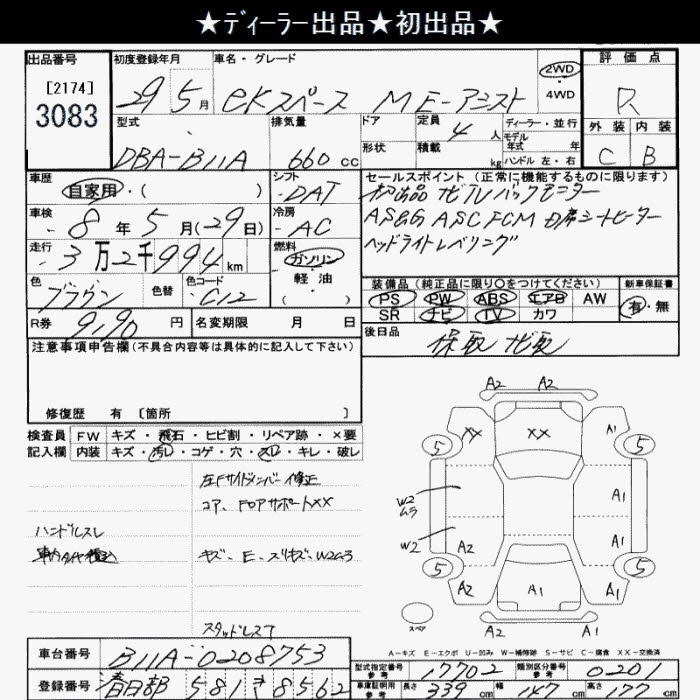 ★ディーラー出品★初出品★
出品番号 初度登録年月 車名・グレード 評価点
[2174] 29 5月 eKスペース ME-アシスト 2WD 4WD R
3083 型式 排気量 ドア 定員 4人 ディーラー・並行 外装 内装
DBA-B11A 660cc 形状 積載 kg モデル年式 年 ハンドル 左・右 C B
車歴 シフト セールスポイント (正常に機能するものに限ります)
自家用・( ) DAT 初出品 ナビTV バックモニター
車検 8年5月(29日) 冷房 AC AS&G ASC FCM D席シートヒーター
走行 3万2千994km 燃料 ガソリン 軽油 ( ) ヘッドライトレベリング
色 ブラウン 色替 色コード C12 装備品 (純正品に限り○をつけてください) 新車保証書
PS PW ABS エアB AW 有・無
R券 9,190円 名変期限 月 日 SR ナビ TV カワ
注意事項申告欄 (不具合内容等は具体的に記入して下さい) 後日品 保取 ナビ取
修復歴 有 〔箇所 〕
検査員 FW キズ・飛石・ヒビ割・リペア跡・×要
記入欄 内装 キズ・汚レ・コゲ・穴・スレ・キレ・破レ
左Fサイドメンバー修正
コア、Fロアサポート××
ハンドルスレ
キズ、E、スリキズ、W2ムラ
スタッドレス7
A2 A2
XX XX A1
5 5
W2ムラ A1
W2 A2 A1
5 5
A2 A1 A1
スペア A2 A2
A-キズ E-エクボ U-凹み W-補修跡 S-サビ C-腐食 XX-交換済
車台番号 B11A-0208753 型式指定番号 参考 17702 類別区分番号 参考 0201
登録番号 春日部 581 き 8562 車庫証明用 参考 長さ 339cm 幅 147cm 高さ 177cm